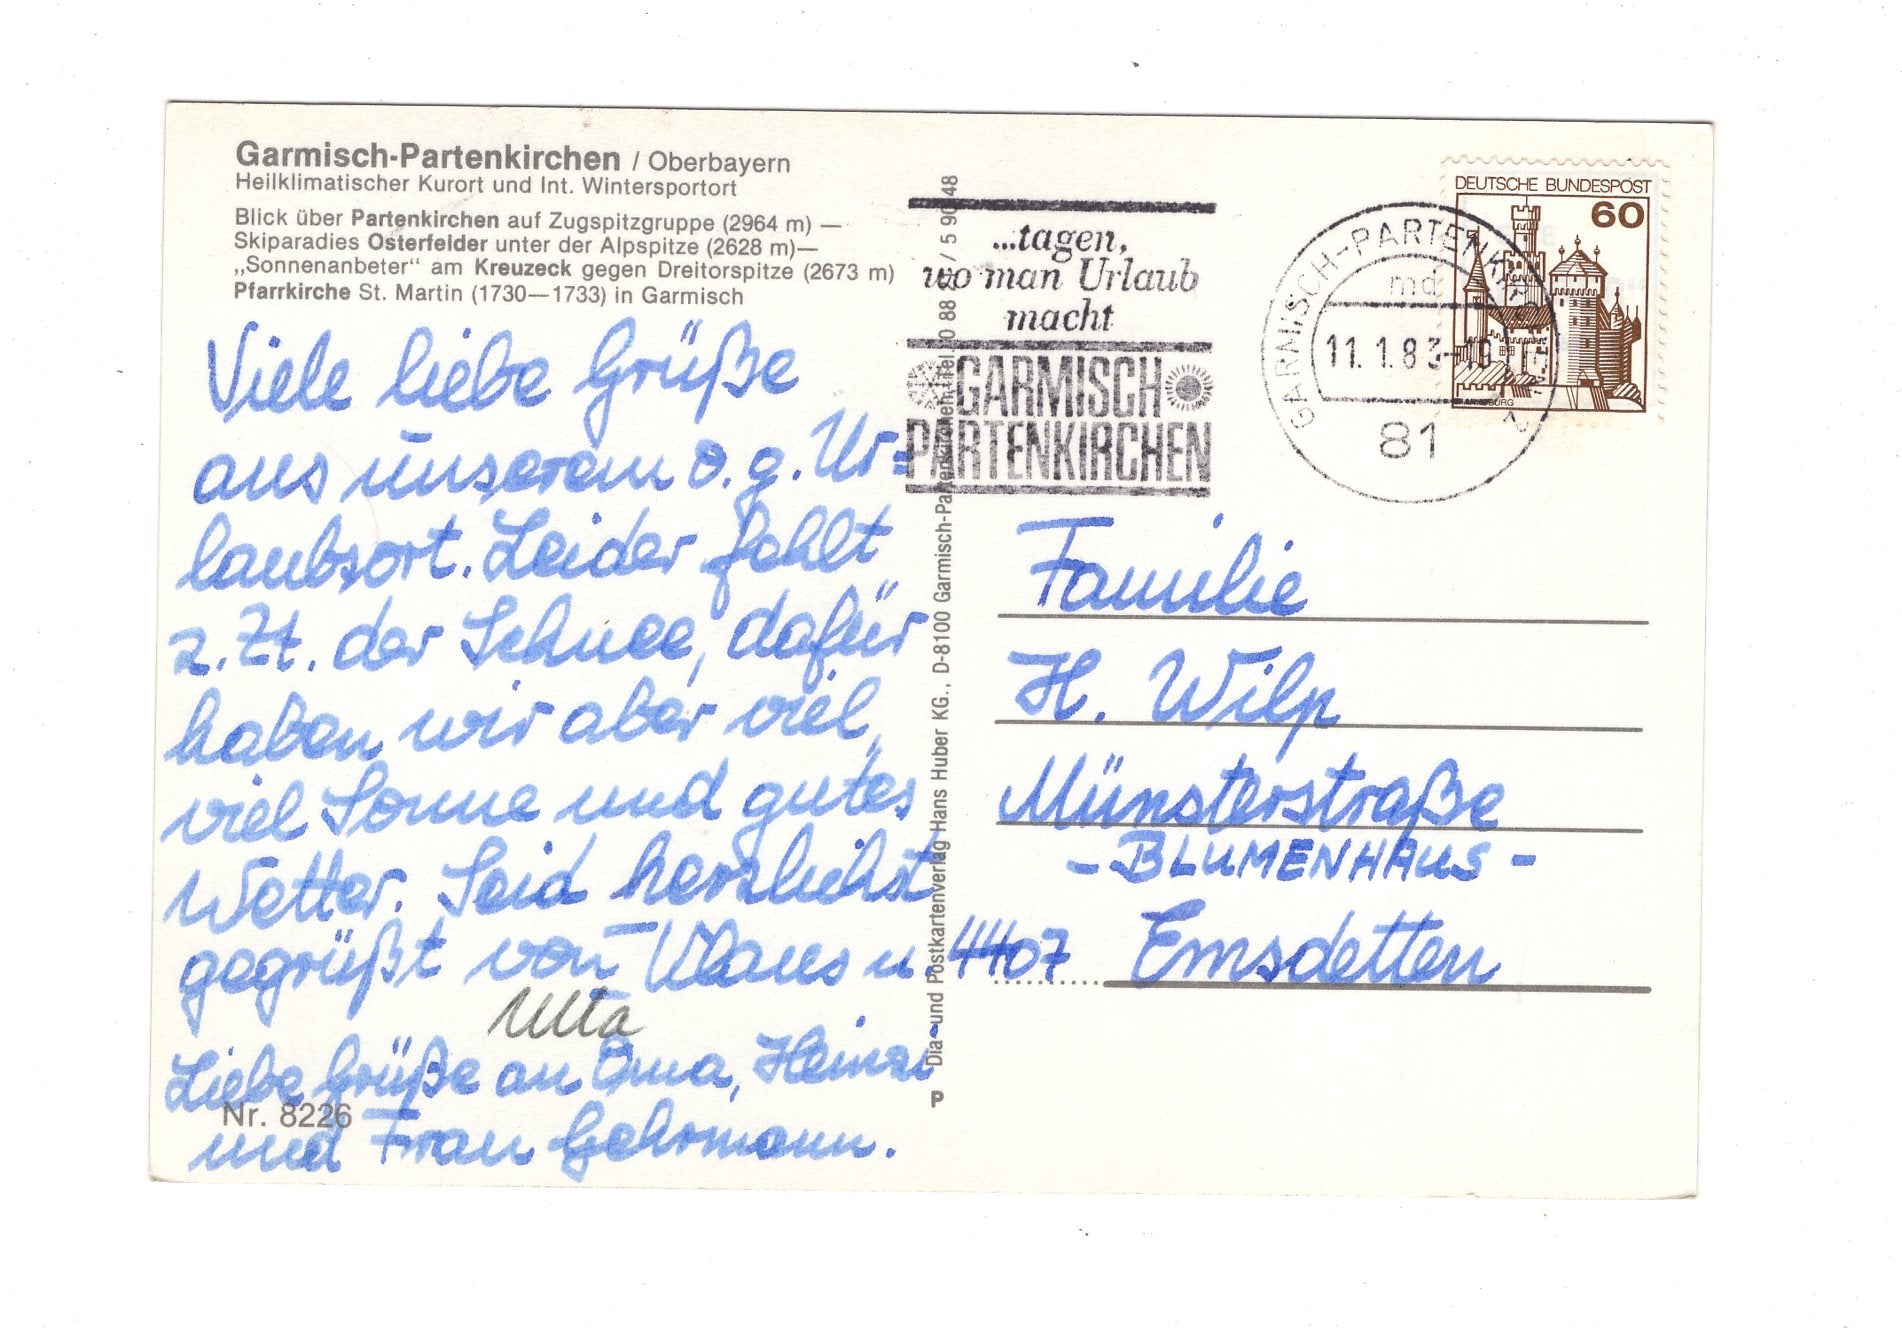 Garmisch-Partenkirchen / Oberbayern
Heilklimatischer Kurort und Int. Wintersportort
Blick über Partenkirchen auf Zugspitzgruppe (2964 m) —
Skiparadies Osterfelder unter der Alpspitze (2628 m)—
„Sonnenanbeter“ am Kreuzeck gegen Dreitorspitze (2673 m)
Pfarrkirche St. Martin (1730—1733) in Garmisch
Viele liebe Grüße
aus unserem o.g. Ur=
laubsort. Leider fehlt
z.Zt. der Schnee, dafür
haben wir aber viel,
viel Sonne und gutes
Wetter. Seid herzlichst
gegrüßt von Klaus u.
Utta
Liebe Grüße an Oma, Heinzi
und Frau Gehrmann.
Nr. 8226
P Dia- und Postkartenverlag Hans Huber KG., D-8100 Garmisch-Partenkirchen
...tagen,
wo man Urlaub
macht
GARMISCH
PARTENKIRCHEN
GARMISCH-PARTENKIRCHEN 2
11.1.83
81
DEUTSCHE BUNDESPOST
60
Familie
H. Wilp
Münsterstraße
- BLUMENHAUS -
4407 Emsdetten